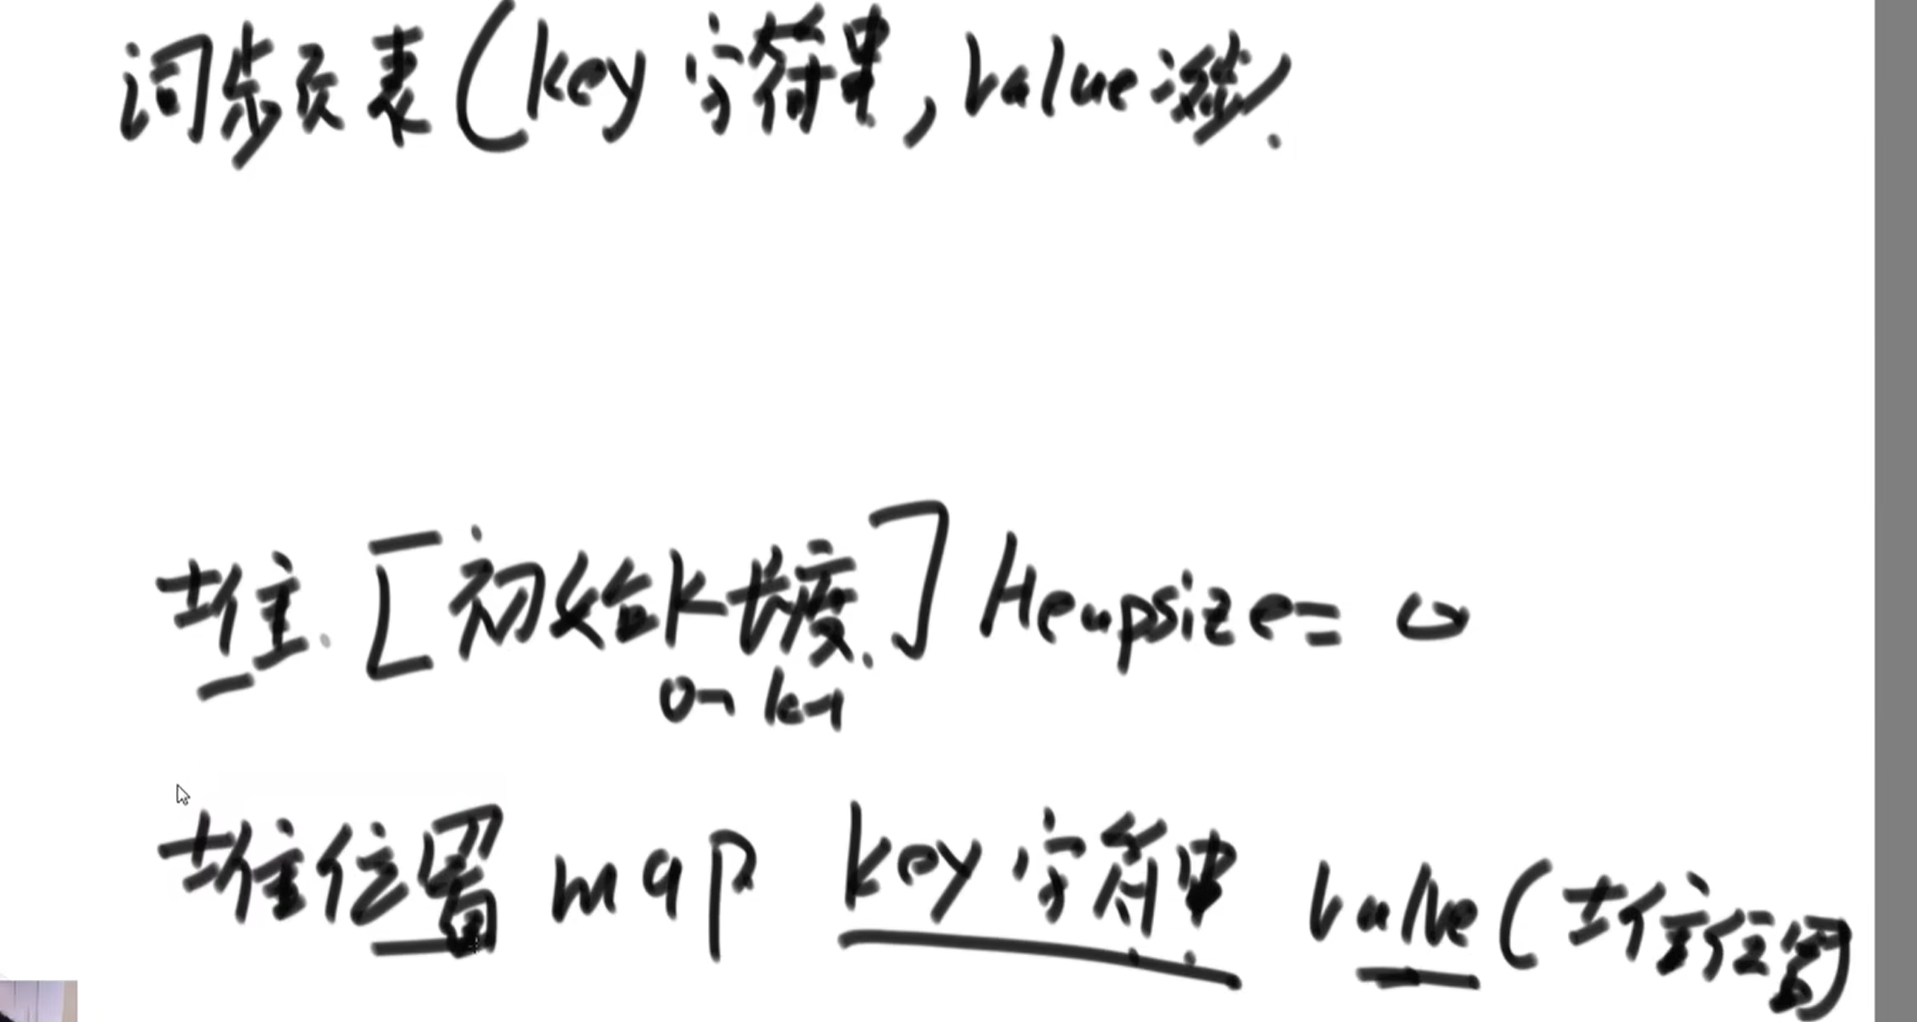 词频表(key 字符串, value 次数).
堆. [初始K长度.] Heapsize= 0
0~k-1
堆位置 map key 字符串 value(堆位置)